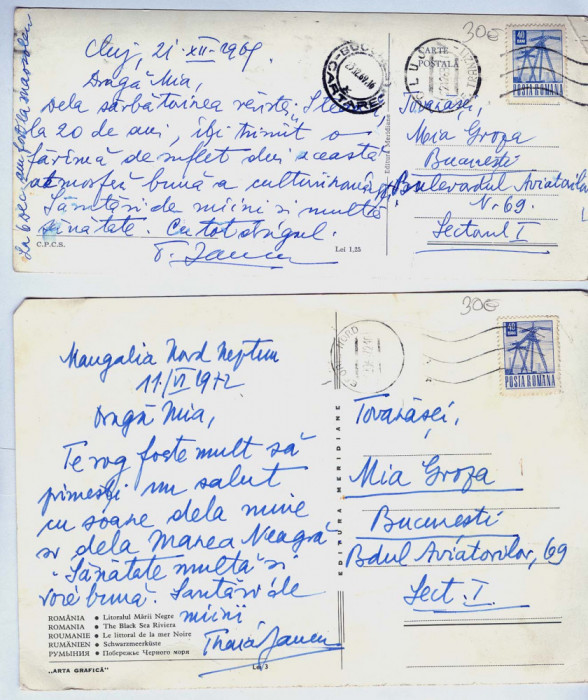 30€
Cluj, 21-XII-1969.
CARTE
POSTALĂ
40
BANI
POSTA ROMANA
Dragă Mia,
Dela sărbătoirea revistei Steaua
la 20 de ani, iți trimit o
fărîmă de suflet din această
atmosferă bună a culturii
Sănătări de mîini si multă
sănătate. Cu tot dragul.
La 6 dec. am fost la
CARTARE
Editura Meridiane
Tovarăşei,
Mia Groza
Bucureşti
Bulevardul Aviatorilor
Nr 69.
Sectorul I
C.P.C.S.
Lei 1,25
30€
Mangalia Nord Neptun
11/VI 1972
NORD
40
BANI
POSTA ROMANA
Dragă Mia,
Te rog foarte mult să
primeşti un salut
cu soare dela mine
si dela Marea Neagră
Sănătate multă si
voie bună.
mîini,
EDITURA MERIDIANE
Tovarăşei,
Mia Groza
Bucureşti
Bdul Aviatorilor, 69
Sect. I.
ROMÂNIA • Litoralul Mării Negre
ROMANIA • The Black Sea Riviera
ROUMANIE • Le littoral de la mer Noire
RUMÄNIEN • Schwarzmeerküste
РУМЫНИЯ • Побережье Черного моря
„ARTA GRAFICĂ"
Lei 3